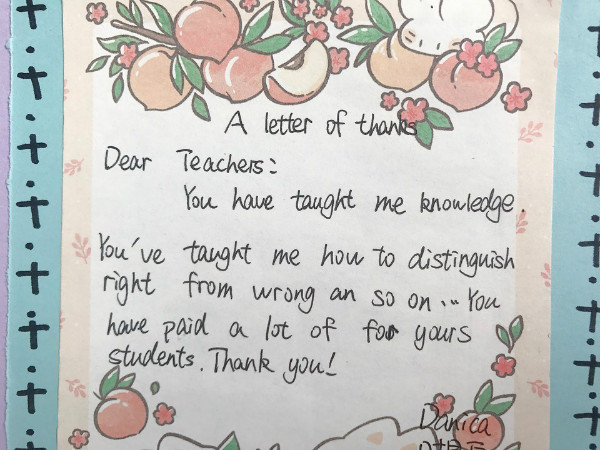 A letter of thanks
Dear Teachers:
You have taught me knowledge.
You've taught me how to distinguish
right from wrong an so on... You
have paid a lot of for yours
students. Thank you!
Danica